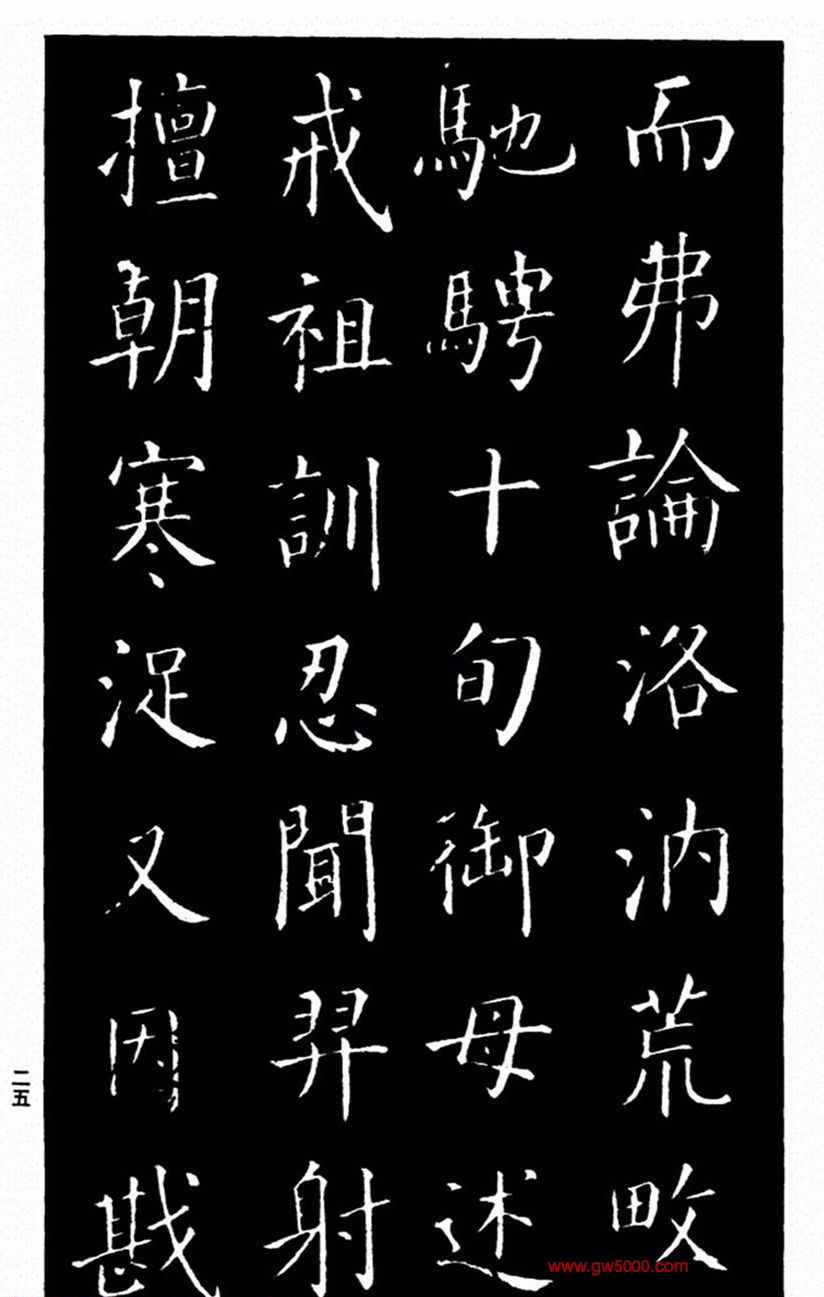 而弗論洛汭荒畋
馳騁十旬御母述
戒祖訓忍聞羿射
擅朝寒浞又因戡
二五
www.gw5000.com